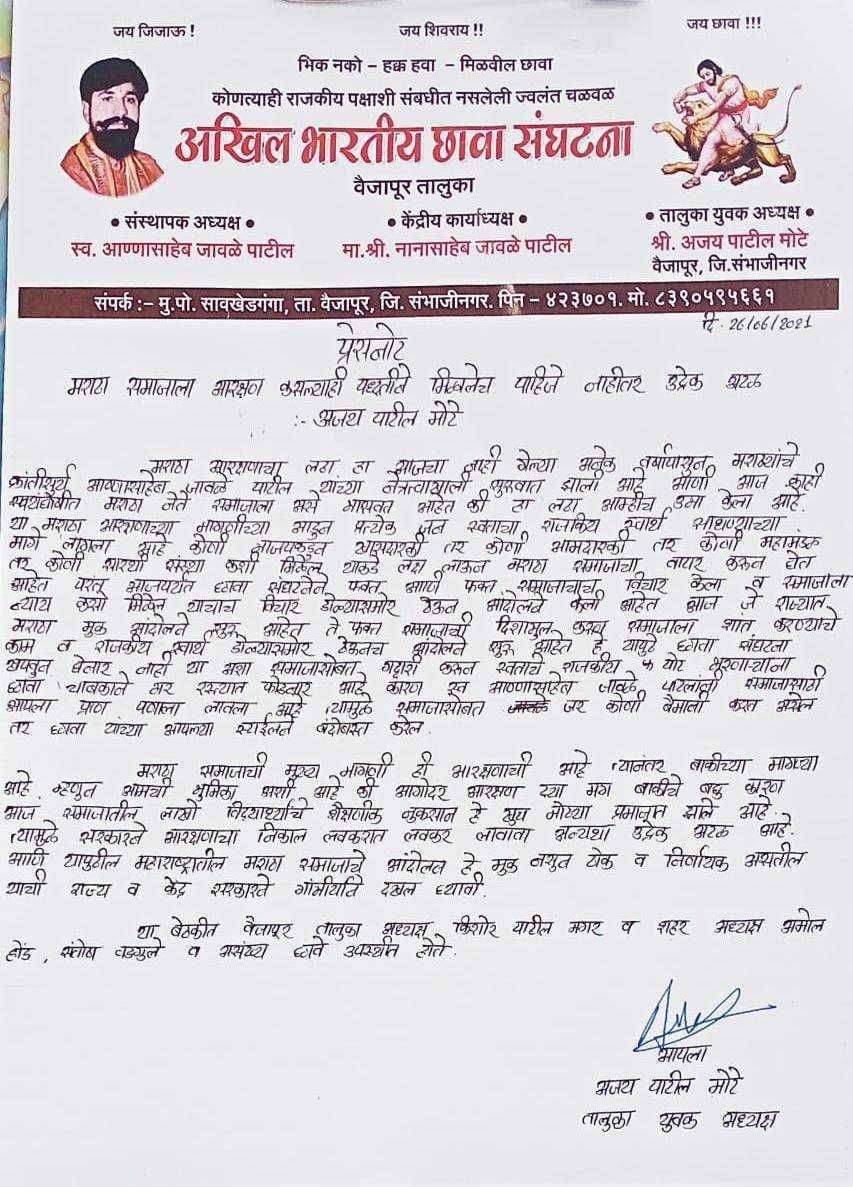 जय जिजाऊ !
जय शिवराय !!
जय छावा !!!
भिक नको – हक्क हवा – मिळवील छावा
कोणत्याही राजकीय पक्षाशी संबधीत नसलेली ज्वलंत चळवळ
अखिल भारतीय छावा संघटना
वैजापूर तालुका
• संस्थापक अध्यक्ष •
स्व. आण्णासाहेब जावळे पाटील
• केंद्रीय कार्याध्यक्ष •
मा.श्री. नानासाहेब जावळे पाटील
• तालुका युवक अध्यक्ष •
श्री. अजय पाटील मोटे
वैजापूर, जि.संभाजीनगर
संपर्क :– मु.पो. सावखेडगंगा, ता. वैजापूर, जि. संभाजीनगर. पिन – ४२३७०१. मो. ८३९०५९५६६१
दि. 26/06/2021
प्रेसनोट
मराठा समाजाला आरक्षण कसल्याही पध्दतीने मिळालेच पाहिजे नाहीतर उद्रेक अटळ
:- अजय पाटील मोटे
मराठा आरक्षणाचा लढा हा आजचा नाही गेल्या अनेक वर्षापासुन मराठ्यांचे
क्रांतीसुर्य आण्णासाहेब जावळे पाटील यांच्या नेत्रत्वाखाली सुरूवात झाली आहे आणी आज काही
स्वयंघोषीत मराठा नेते समाजाला असे भासवत आहेत की हा लढा आम्हीच उभा केला आहे.
या मराठा आरक्षणाच्या मागणीच्या आडुन प्रत्येक जन स्वताचा राजकीय स्वार्थ साधण्याच्या
मागे लागला आहे कोणी भाजपकडुन खासदारकी तर कोणी आमदारकी तर कोणी महामंडळ
तर कोणी सारथी संस्था कशी मिळेल याकडे लक्ष लाऊन मराठा समाजाचा वापर करून घेत
आहेत परंतु आजपर्यंत छावा संघटनेने फक्त आणी फक्त समाजाचाच विचार केला व समाजाला
न्याय कसा मिळेल याचाच विचार डोळ्यासमोर ठेऊन आंदोलने केली आहेत आज जे राज्यात
मराठा मुक आंदोलने सुरू आहेत ते फक्त समाजाची दिशाभुल करून समाजाला शांत करण्याचे
काम व राजकीय स्वार्थ डोळ्यासमोर ठेऊनच आंदोलने सुरू आहेत हे यापुढे छावा संघटना
खपवुन घेनार नाही या अशा समाजासोबत गद्दारी करून स्वताचे राजकीय पोट भरणाऱ्यांना
छावा चाबकाने भर रस्त्यात फोडनार आहे कारण स्व आण्णासाहेब जावळे पाटलांनी समाजासाठी
आपला प्राण पणाला लावला आहे त्यामुळे समाजासोबत जर कोणी बेमानी करत असेल
तर छावा यांच्या आपल्या स्टाईलने बंदोबस्त करेल.
मराठा समाजाची मुख्य मागणी ही आरक्षणाची आहे त्यानंतर बाकीच्या मागण्या
आहे. म्हणुन आमची भुमिका अशी आहे की आगोदर आरक्षण द्या मग बाकीचे बघु कारण
आज समाजातील लाखो विद्यार्थ्यांचे शैक्षणीक नुकसान हे खुप मोठ्या प्रमाणात झाले आहे.
त्यामुळे सरकारने आरक्षणाचा निकाल लवकरात लवकर लावावा अन्यथा उद्रेक अटळ आहे.
आणि यापुढील महाराष्ट्रातील मराठा समाजाचे आंदोलन हे मुक नसुन ठोक व निर्णायक असतील
याची राज्य व केंद्र सरकारने गांभीर्याने दखल घ्यावी.
या बैठकीत वैजापूर तालुका अध्यक्ष किशोर पाटील मगर व शहर अध्यक्ष अमोल
होंड, संतोष व असंख्य छावे उपस्थीत होते.
आपला
अजय पाटील मोटे
तालुका युवक अध्यक्ष